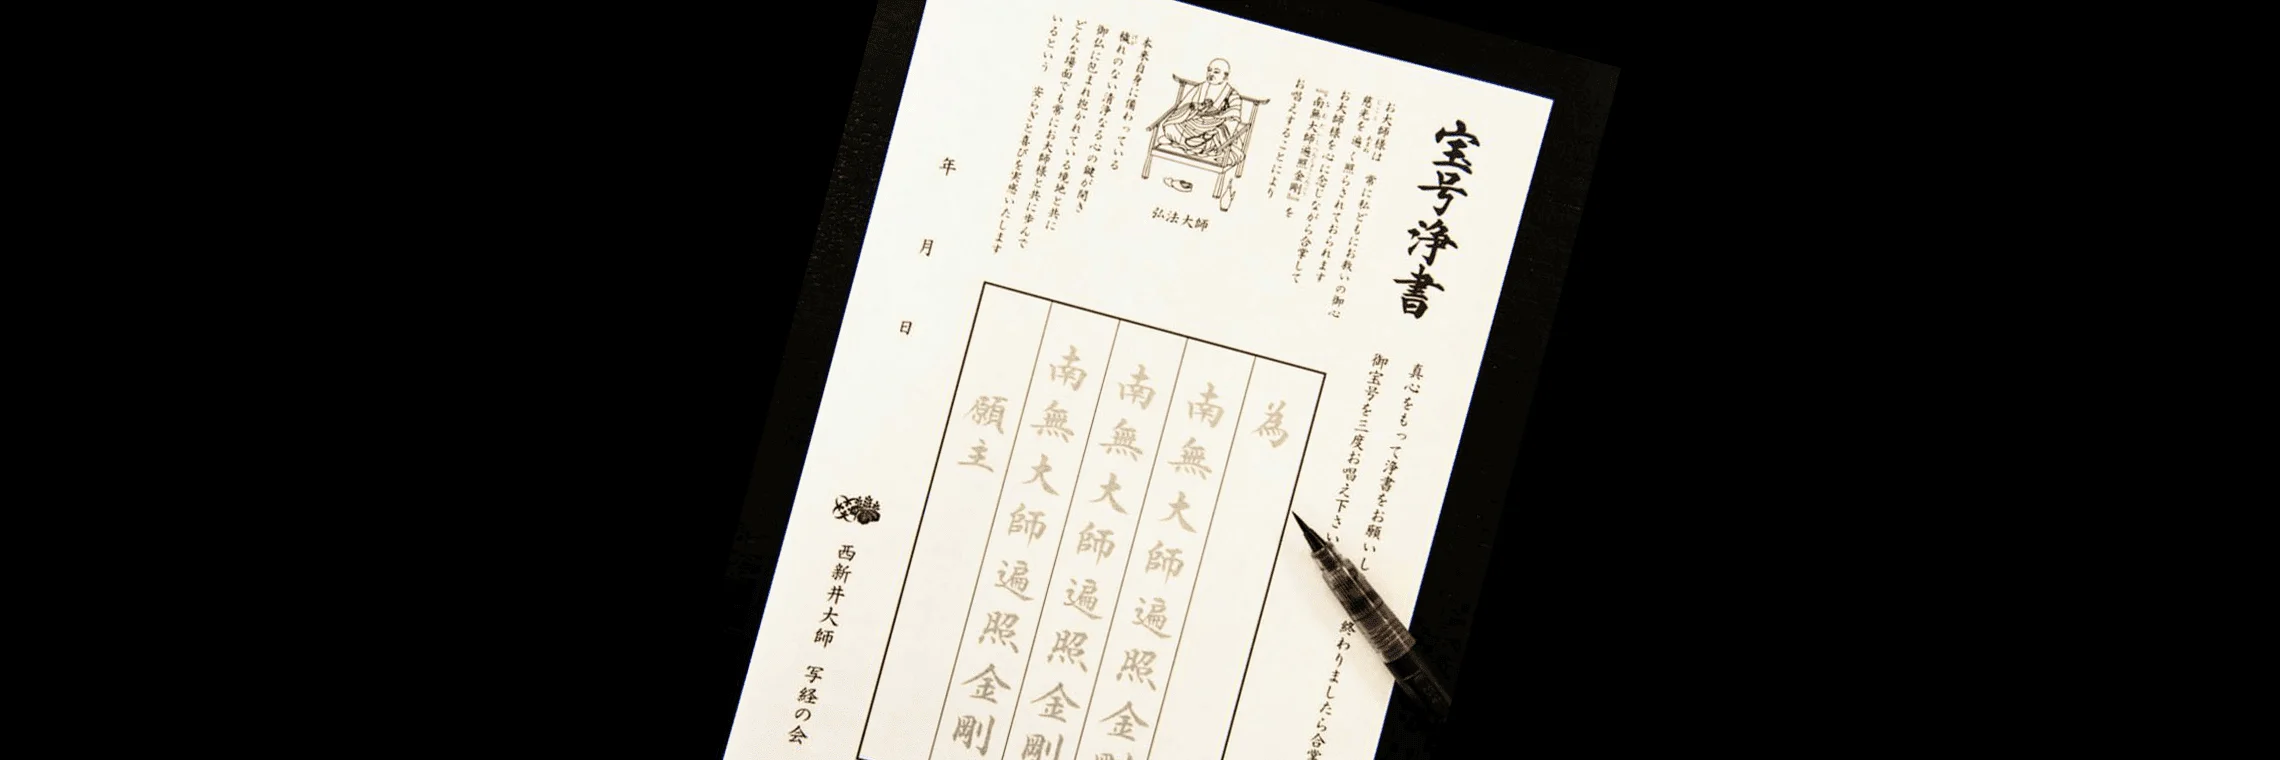 宝号浄書
真心をもって浄書をお願いし
御宝号を三度お唱え下さい
終わりましたら合掌
お大師様は 常に私どもにお救いの御心
慈光を遍く照らされておられます
お大師様を心に念じながら合掌して
『南無大師遍照金剛』を
お唱えすることにより
弘法大師
本来自身に備わっている
穢れのない清浄なる心の鍵が開き
御仏に包まれ抱かれている境地と共に
どんな場面でも常にお大師様と共に歩んで
いるという 安らぎと喜びを実感いたします
為
南無大師遍照金剛
南無大師遍照金剛
南無大師遍照金剛
願主
年 月 日
西新井大師 写経の会